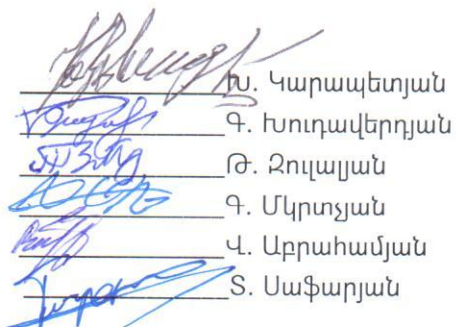 Խ. Կարապետյան
Գ. Խուդավերդյան
Թ. Զուլալյան
Գ. Մկրտչյան
Վ. Աբրահամյան
Տ. Սաֆարյան